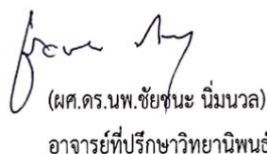 (ผศ.ดร.นพ.ชัยชนะ นิ่มนวล)
อาจารย์ที่ปรึกษาวิทยานิพนธ์